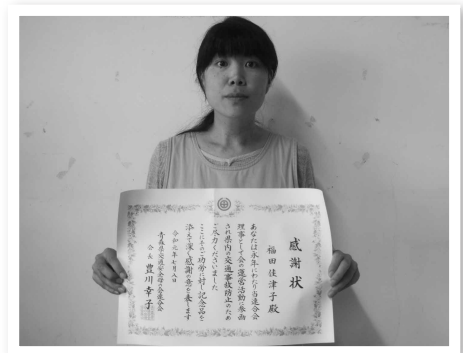 感謝状
福田佳津子殿
あなたは永年にわたり当連分会
理事として会の運営活動に参画
され県内の交通事故防止のため
ご尽力くださいました
ここにそのご功労に対し記念品を
添えて深く感謝の意を表します
令和元年七月八日
青森県交通安全母の会連合会
会長 豊川幸子